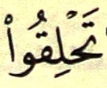 تَحْلِقُوا۟